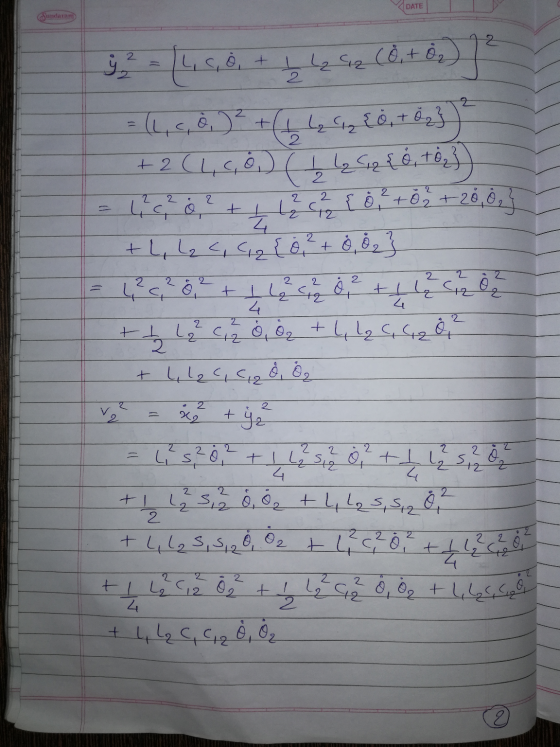 DATE
ẏ₂² = [l₁ c₁ θ̇₁ + 1/2 l₂ c₁₂ (θ̇₁ + θ̇₂)]²
= (l₁ c₁ θ̇₁)² + (1/2 l₂ c₁₂ {θ̇₁ + θ̇₂})²
+ 2 (l₁ c₁ θ̇₁) (1/2 l₂ c₁₂ {θ̇₁ + θ̇₂})
= l₁² c₁² θ̇₁² + 1/4 l₂² c₁₂² {θ̇₁² + θ̇₂² + 2θ̇₁θ̇₂}
+ l₁ l₂ c₁ c₁₂ {θ̇₁² + θ̇₁θ̇₂}
= l₁² c₁² θ̇₁² + 1/4 l₂² c₁₂² θ̇₁² + 1/4 l₂² c₁₂² θ̇₂²
+ 1/2 l₂² c₁₂² θ̇₁ θ̇₂ + l₁ l₂ c₁ c₁₂ θ̇₁²
+ l₁ l₂ c₁ c₁₂ θ̇₁ θ̇₂
v₂² = ẋ₂² + ẏ₂²
= l₁² s₁² θ̇₁² + 1/4 l₂² s₁₂² θ̇₁² + 1/4 l₂² s₁₂² θ̇₂²
+ 1/2 l₂² s₁₂² θ̇₁ θ̇₂ + l₁ l₂ s₁ s₁₂ θ̇₁²
+ l₁ l₂ s₁ s₁₂ θ̇₁ θ̇₂ + l₁² c₁² θ̇₁² + 1/4 l₂² c₁₂² θ̇₁²
+ 1/4 l₂² c₁₂² θ̇₂² + 1/2 l₂² c₁₂² θ̇₁ θ̇₂ + l₁ l₂ c₁ c₁₂ θ̇₁²
+ l₁ l₂ c₁ c₁₂ θ̇₁ θ̇₂
2